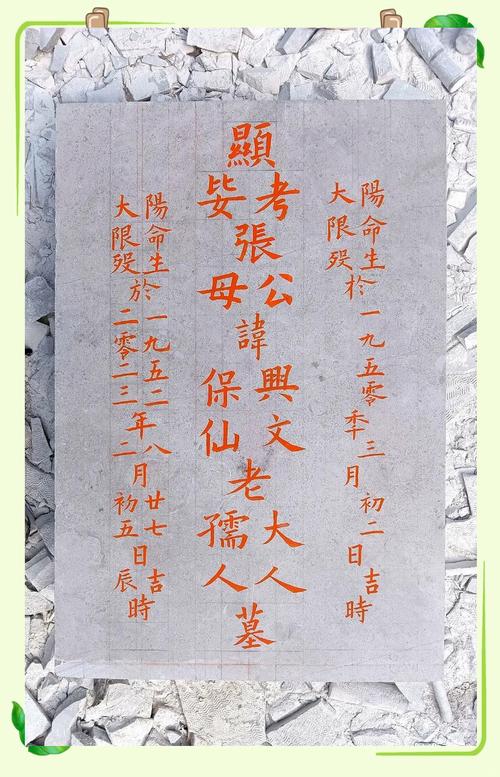 陽命生於一九五零秊三月初二日吉時
大限歿
顯考張公諱興文老大人墓
妣母保仙孺人
陽命生於一九五二年八月廿七日吉時
大限歿二零二三二初五辰